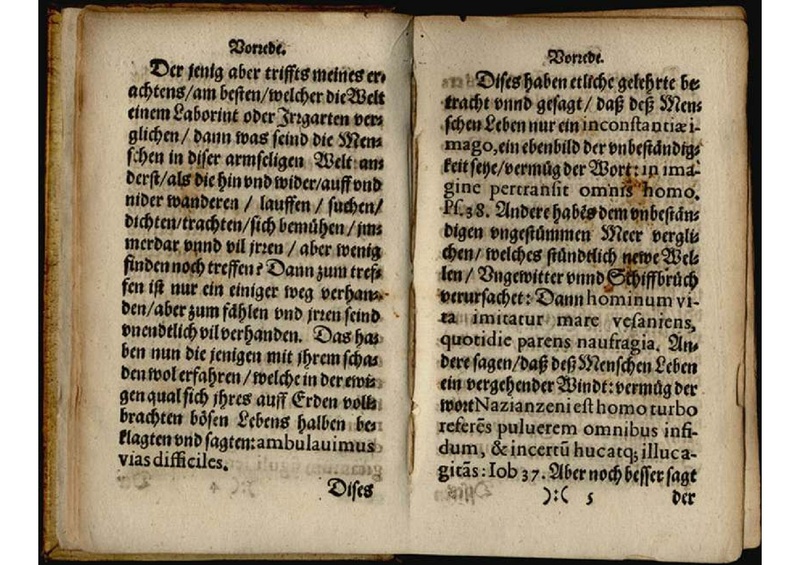 Vorrede.
Der jenig aber triffts meines er-
achtens/am besten/welcher die Welt
einem Laborint oder Jrrgarten ver-
glichen / dann was seind die Men-
schen in diser armseligen Welt an-
derst/als die hin vnd wider/auff vnd
nider wanderen / lauffen / suchen/
dichten/trachten/sich bemühen / jm-
merdar vnnd vil jrren / aber wenig
finden noch treffen? Dann zum tref-
fen ist nur ein einiger weg verhan-
den/aber zum fählen vnd jrren seind
vnendtlich vil verhanden. Das ha-
ben nun die jenigen mit jhrem scha-
den wol erfahren/welche in der ewi-
gen qual sich jhres auff Erden voll-
brachten bösen Lebens halben be-
klagten vnd sagten: ambulauimus
vias difficiles.
Dises
Vorrede.
Dises haben etliche gelehrte be-
tracht vnnd gesagt / daß deß Men-
schen Leben nur ein inconstantiæ i-
mago, ein ebenbild der vnbeständig-
keit seye/vermüg der Wort: in ima-
gine pertransit omnis homo.
Ps. 38. Andere habēs dem vnbestän-
digen vngestümmen Meer vergli-
chen/ welches stündtlich newe Wel-
len / Vngewitter vnnd Schiffbrüch
verursachet: Dann hominum vi-
ta imitatur mare vesaniens,
quotidie parens naufragia. An-
dere sagen/daß deß Menschen Leben
ein vergehender Windt: vermüg der
wort Nazianzeni est homo turbo
referēs puluerem omnibus infi-
dum, & incertū huc atq; illuc a-
gitās: Iob 37. Aber noch besser sagt
):( 5 der